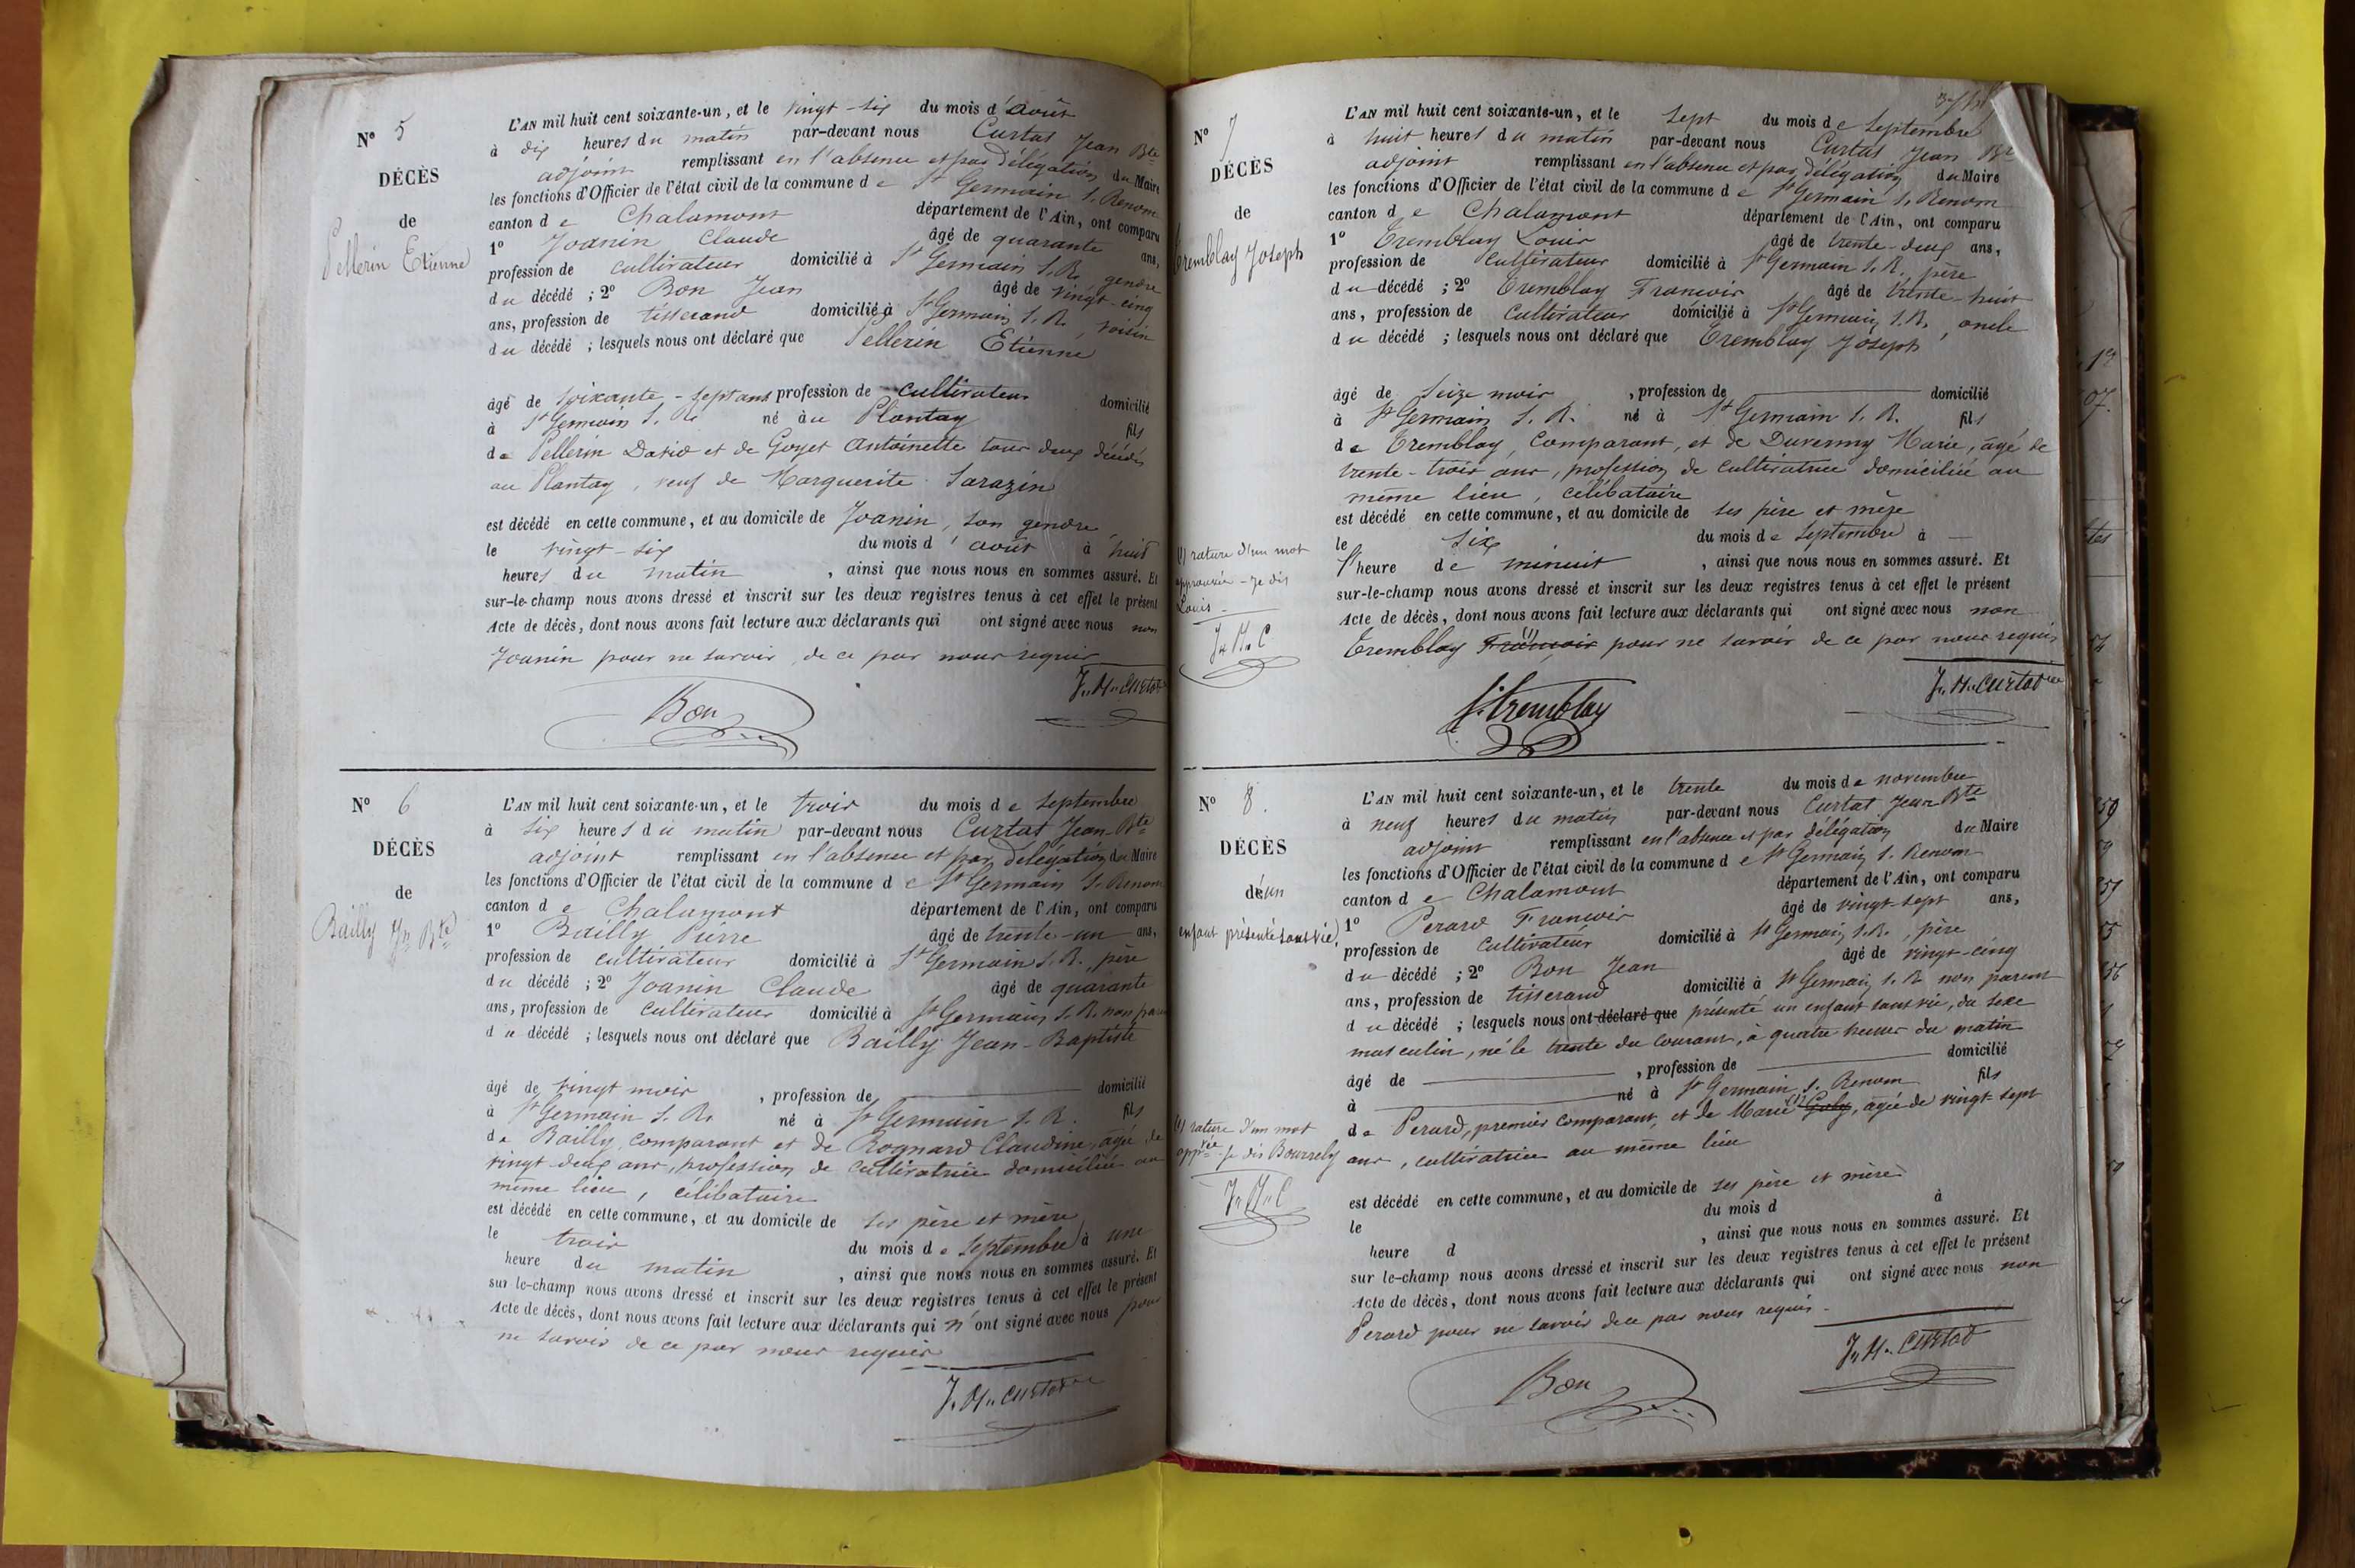 N° 5
DÉCÈS
de
Pellerin Etienne
L'AN mil huit cent soixante-un, et le vingt-six du mois d'août
à dix heures du matin par-devant nous Curtat Jean Bte
adjoint remplissant en l'absence et par délégation du Maire
les fonctions d'Officier de l'état civil de la commune de St Germain s. Renom
canton de Chalamont département de l'Ain, ont comparu
1° Joanin Claude âgé de quarante ans,
profession de cultivateur domicilié à St Germain s. R. gendre
du décédé ; 2° Bon Jean âgé de vingt-cinq
ans, profession de tisserand domicilié à St Germain s. R., voisin
du décédé ; lesquels nous ont déclaré que Pellerin Etienne
âgé de soixante-sept ans profession de cultivateur domicilié
à St Germain s. R. né au Plantay fils
de Pellerin David et de Goyet Antoinette tous deux décédés
au Plantay, veuf de Marguerite Sarazin
est décédé en cette commune, et au domicile de Joanin, son gendre
le vingt-six du mois d'août à huit
heures du matin , ainsi que nous nous en sommes assuré. Et
sur-le-champ nous avons dressé et inscrit sur les deux registres tenus à cet effet le présent
Acte de décès, dont nous avons fait lecture aux déclarants qui ont signé avec nous non
Joanin pour ne savoir, de ce par nous requis
Bon
J. B. Curtat
N° 6
DÉCÈS
de
Bailly Jn Bte
L'AN mil huit cent soixante-un, et le trois du mois de septembre
à six heures du matin par-devant nous Curtat Jean-Bte
adjoint remplissant en l'absence et par délégation du Maire
les fonctions d'Officier de l'état civil de la commune de St Germain s. Renom
canton de Chalamont département de l'Ain, ont comparu
1° Bailly Pierre âgé de trente-un ans,
profession de cultivateur domicilié à St Germain s. R., père
du décédé ; 2° Joanin Claude âgé de quarante
ans, profession de cultivateur domicilié à St Germain s. R. non paren
du décédé ; lesquels nous ont déclaré que Bailly Jean-Baptiste
âgé de vingt mois , profession de domicilié
à St Germain s. R. né à St Germain s. R. fils
de Bailly, comparant et de Rognard Claudine, âgée de
vingt-deux ans, profession de cultivatrice domiciliée au
même lieu, célibataire
est décédé en cette commune, et au domicile de ses père et mère
le trois du mois de septembre à une
heure du matin , ainsi que nous nous en sommes assuré. Et
sur le-champ nous avons dressé et inscrit sur les deux registres tenus à cet effet le présent
Acte de décès, dont nous avons fait lecture aux déclarants qui n'ont signé avec nous pour
ne savoir de ce par nous requis
J. B. Curtat
N° 7
DÉCÈS
de
Tremblay Joseph
L'AN mil huit cent soixante-un, et le sept du mois de septembre
à huit heures du matin par-devant nous Curtat Jean Bte
adjoint remplissant en l'absence et par délégation du Maire
les fonctions d'Officier de l'état civil de la commune de St Germain s. Renom
canton de Chalamont département de l'Ain, ont comparu
1° Tremblay Louis âgé de trente-deux ans,
profession de cultivateur domicilié à St Germain s. R., père
du décédé ; 2° Tremblay François âgé de trente-huit
ans, profession de cultivateur domicilié à St Germain s. R., oncle
du décédé ; lesquels nous ont déclaré que Tremblay Joseph
âgé de seize mois , profession de domicilié
à St Germain s. R. né à St Germain s. R. fils
de Tremblay, comparant, et de Duvernny Marie, âgé de
trente-trois ans, profession de cultivatrice domiciliée au
même lieu, célibataire
est décédé en cette commune, et au domicile de ses père et mère
le six du mois de septembre à
l'heure de minuit , ainsi que nous nous en sommes assuré. Et
sur-le-champ nous avons dressé et inscrit sur les deux registres tenus à cet effet le présent
Acte de décès, dont nous avons fait lecture aux déclarants qui ont signé avec nous non
Tremblay (1) François pour ne savoir de ce par nous requis
(1) rature d'un mot
approuvée - je dis
Louis -
J. B. C
f. tremblay
J. B. Curtat
N° 8.
DÉCÈS
d'un
enfant présenté sans vie.
L'AN mil huit cent soixante-un, et le trente du mois de novembre
à neuf heures du matin par-devant nous Curtat Jean Bte
adjoint remplissant en l'absence et par délégation du Maire
les fonctions d'Officier de l'état civil de la commune de St Germain s. Renom
canton de Chalamont département de l'Ain, ont comparu
1° Perard François âgé de vingt-sept ans,
profession de cultivateur domicilié à St Germain s. R., père
du décédé ; 2° Bon Jean âgé de vingt-cinq
ans, profession de tisserand domicilié à St Germain s. R. non parent
du décédé ; lesquels nous ont déclaré que présenté un enfant sans vie, du sexe
masculin, né le trente du courant, à quatre heures du matin
âgé de , profession de domicilié
à né à St Germain s. Renom fils
de Perard, premier comparant, et de Marie (1) Goly, âgée de vingt-sept
ans, cultivatrice au même lieu
(1) rature d'un mot
appvée je dis Bourrely
J. B. C
est décédé en cette commune, et au domicile de ses père et mère
le du mois d à
heure d , ainsi que nous nous en sommes assuré. Et
sur le-champ nous avons dressé et inscrit sur les deux registres tenus à cet effet le présent
Acte de décès, dont nous avons fait lecture aux déclarants qui ont signé avec nous non
Perard pour ne savoir de ce par nous requis -
Bon
J. B. Curtat